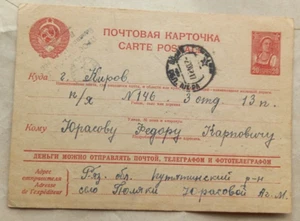 ПОЧТОВАЯ КАРТОЧКА
CARTE POSTALE
Куда г. Киров
п/я №146 3 отд. 13 п.
Кому Юрасову Федору Карповичу
ДЕНЬГИ МОЖНО ОТПРАВЛЯТЬ ПОЧТОЙ, ТЕЛЕГРАФОМ И ФОТОТЕЛЕГРАФОМ
Адрес отправителя
Adresse de l'expéditeur
Ряз. обл. Путятинский р-н
село Поляки Юрасовой М.